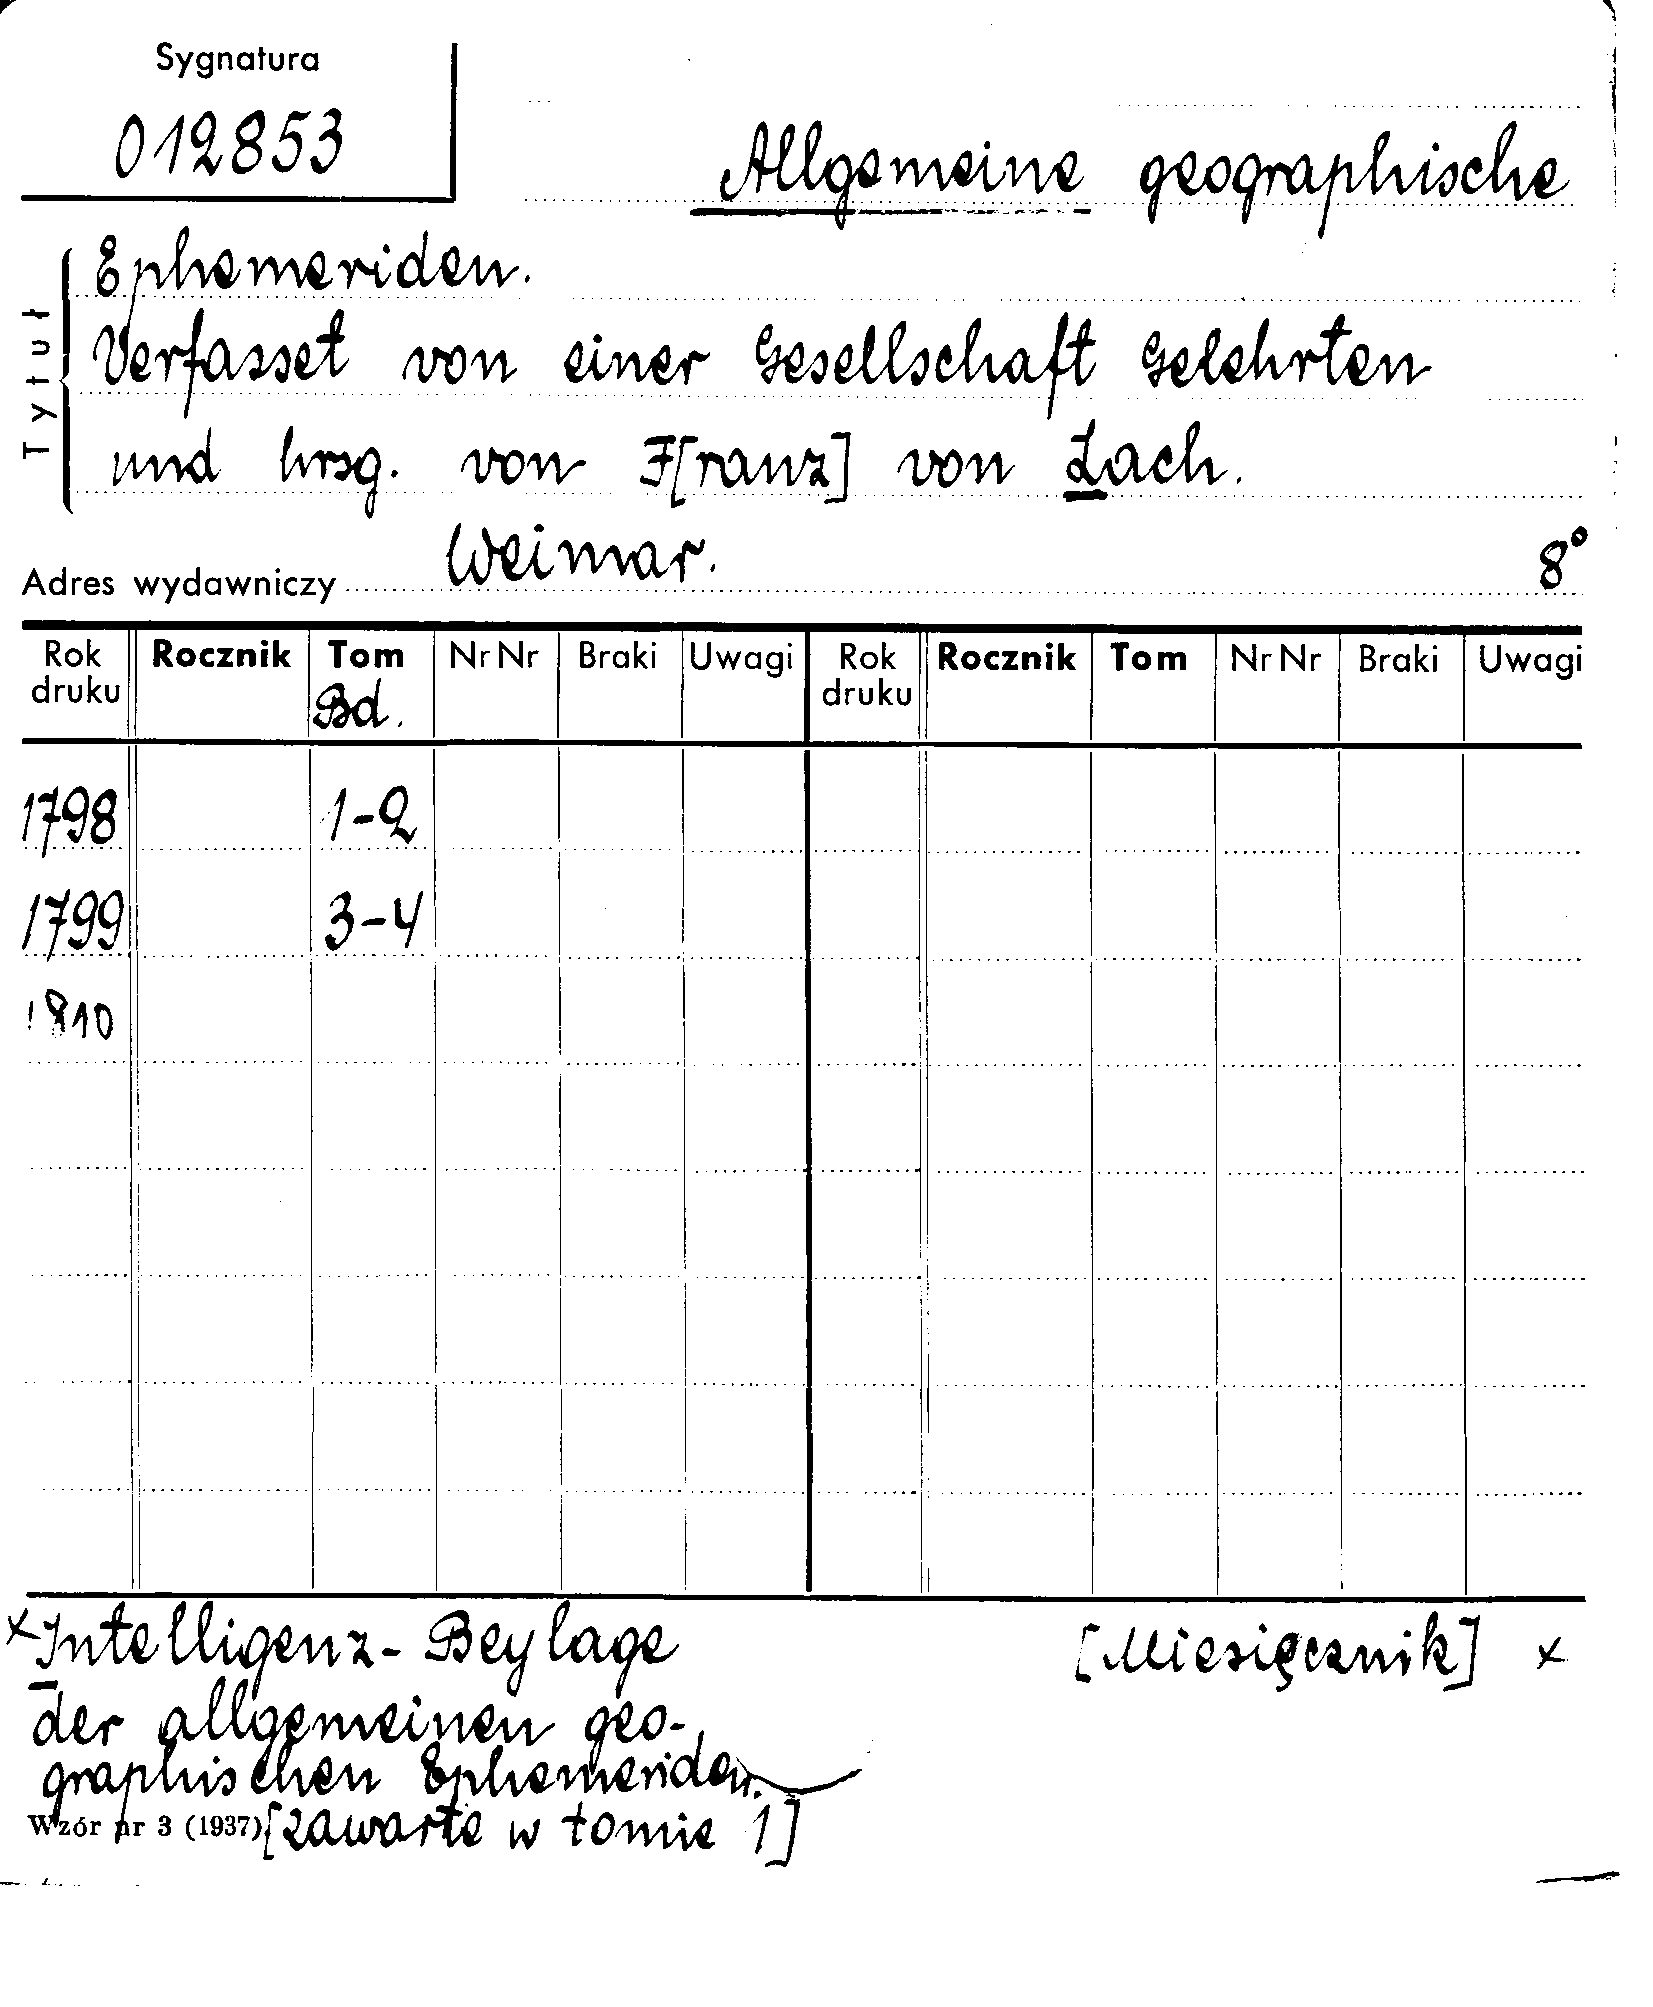 Sygnatura
012853
Allgemeine geographische
Ephemeriden.
Verfasset von einer Gesellschaft Gelehrten
und hrsg. von F[ranz] von Zach.
Tytuł
Adres wydawniczy Weimar. 8°
Rok druku Rocznik Tom Nr Nr Braki Uwagi Rok druku Rocznik Tom Nr Nr Braki Uwagi
Bd.
1798 1-2
1799 3-4
1810
x Intelligenz-Beylage [Miesięcznik] x
der allgemeinen geo-
graphischen Ephemeriden.
Wzór nr 3 (1937) [zawarte w tomie 1]